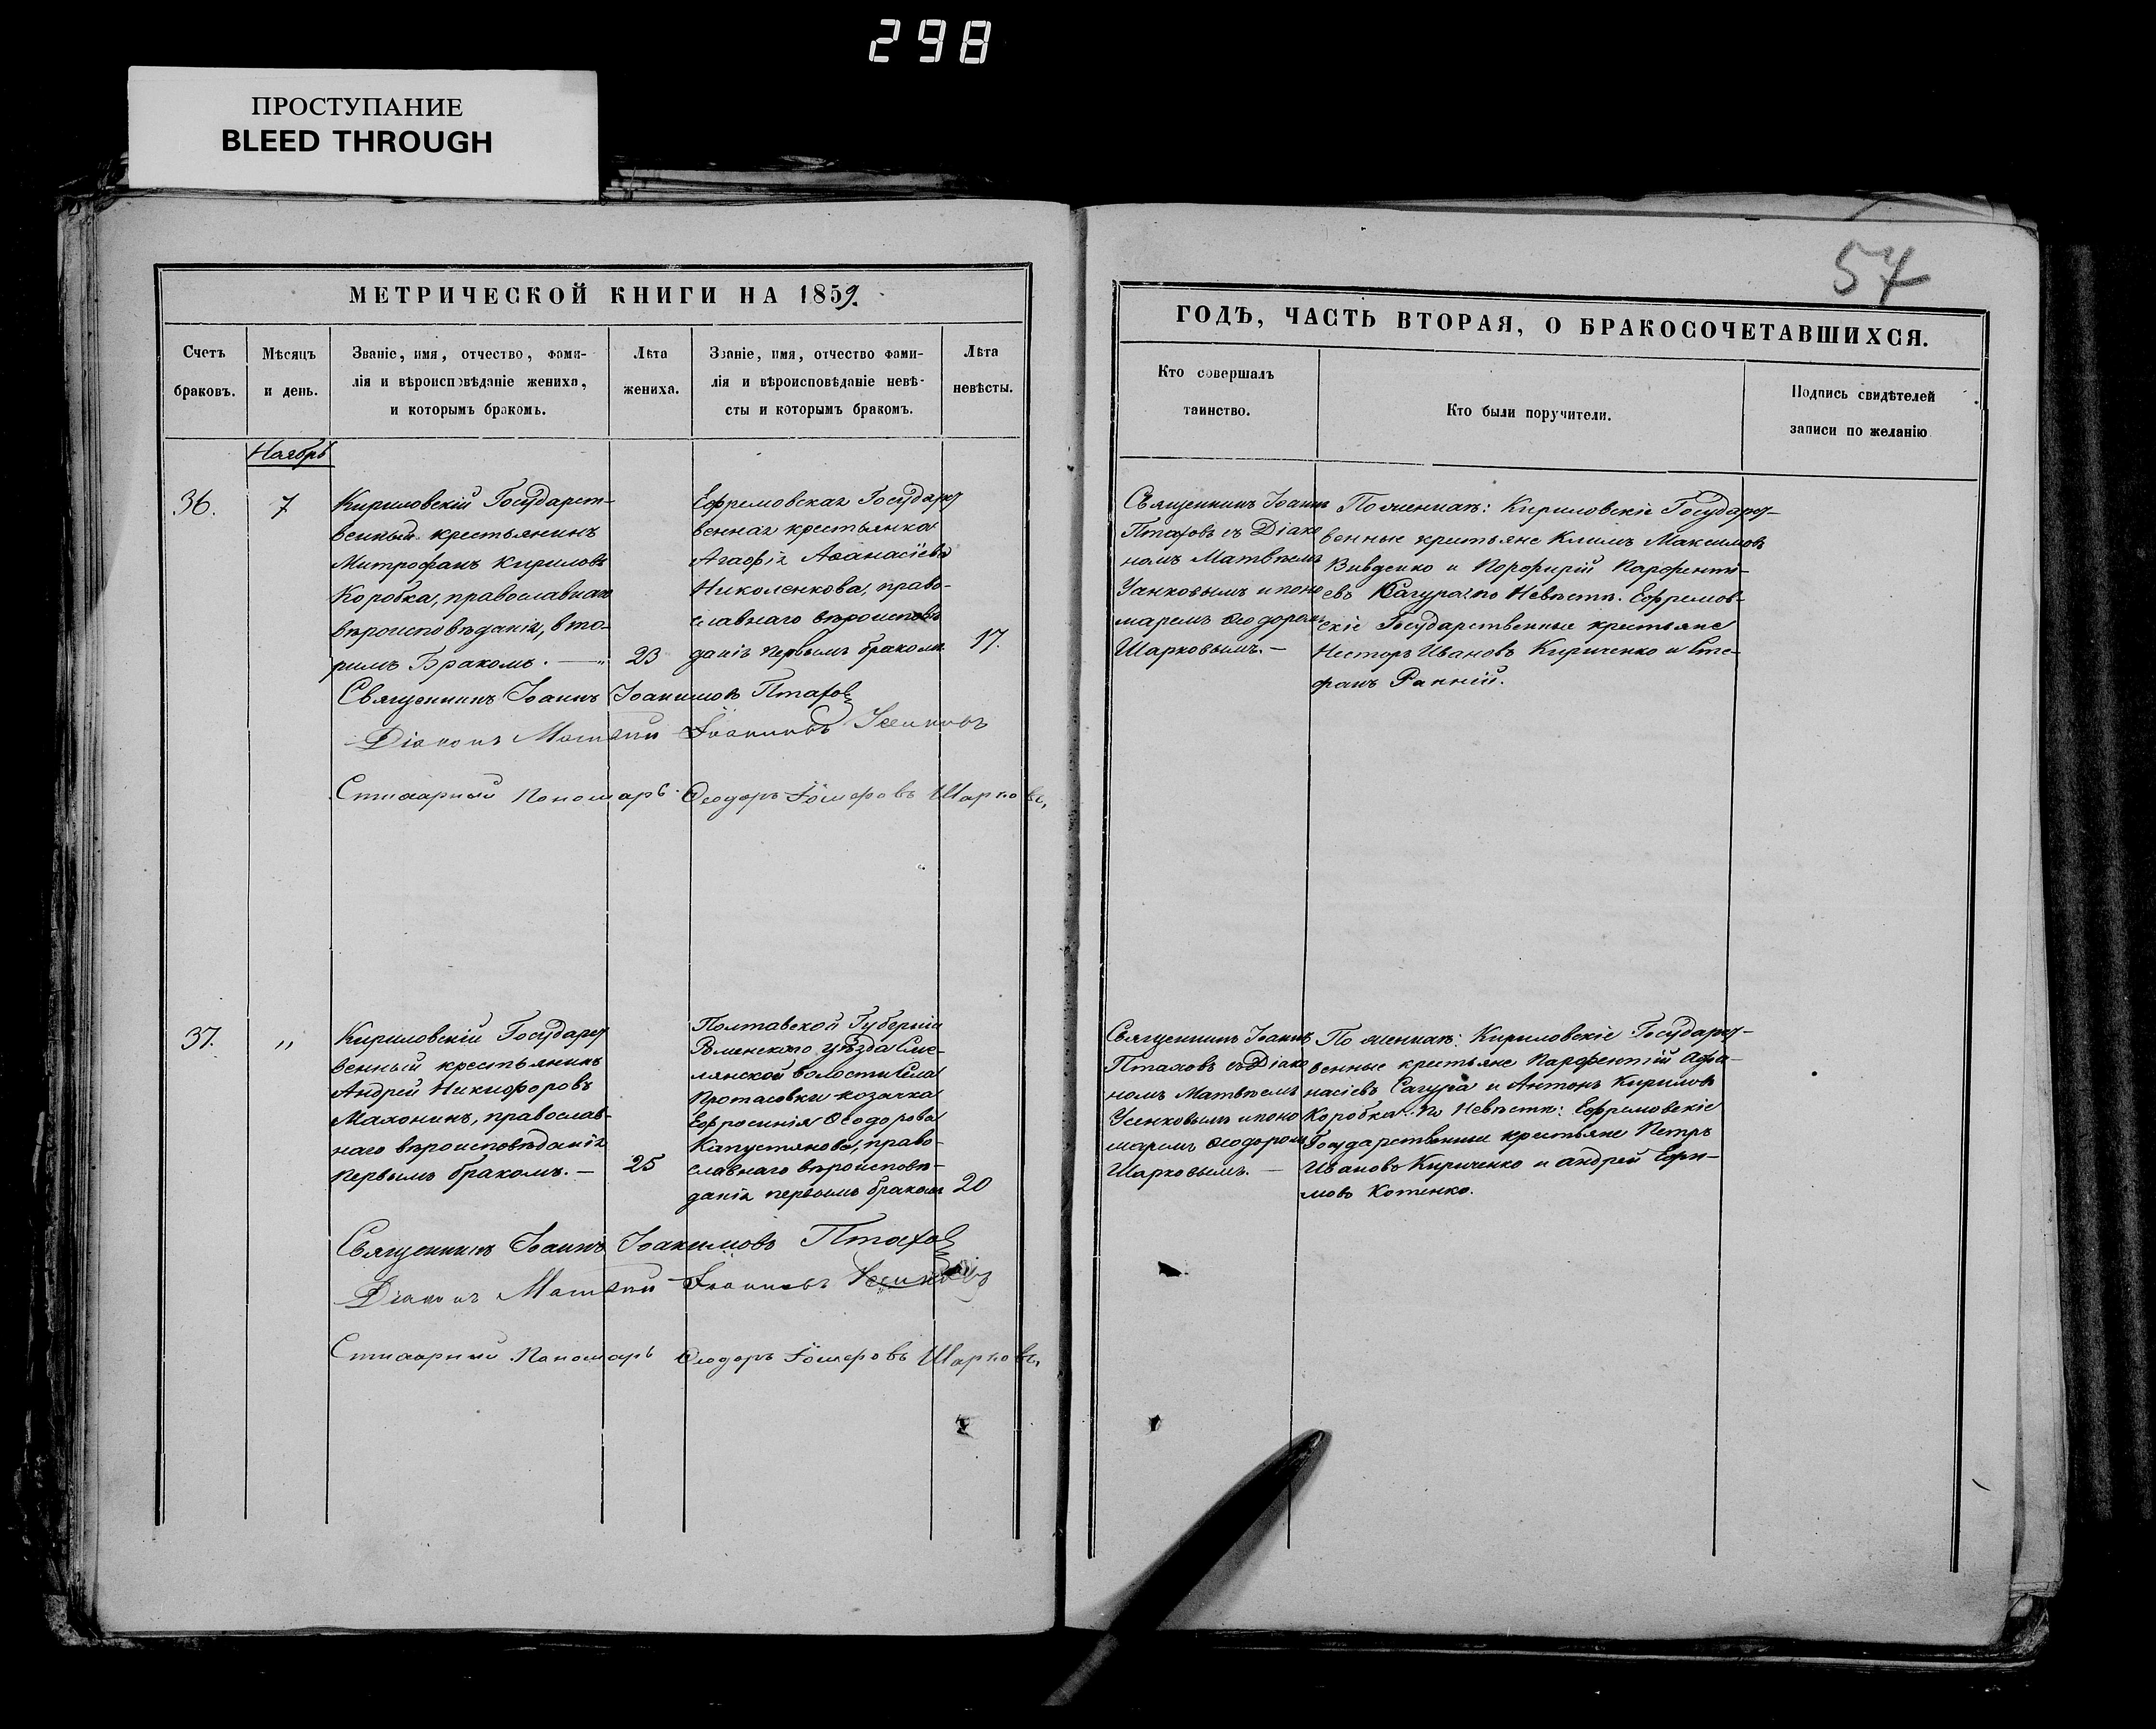 298
ПРОСТУПАНИЕ
BLEED THROUGH
57
МЕТРИЧЕСКОЙ КНИГИ НА 1859.
Счетъ браковъ.
Мѣсяцъ и день.
Званіе, имя, отчество, фами-
лія и вѣроисповѣданіе жениха,
и которымъ бракомъ.
Лѣта жениха.
Званіе, имя, отчество фами-
лія и вѣроисповѣданіе невѣ-
сты и которымъ бракомъ.
Лѣта невѣсты.
Ноябрь
36.
7
Кириловскій Государст-
венный крестьянинъ
Митрофанъ Кириловъ
Коробка, православнаго
вѣроисповѣданія, вто-
рымъ Бракомъ. —
23
Ефремовская Государст
венная крестьянка
Агафія Аѳанасіева
Николенкова, право-
славнаго вѣроисповѣ
данія первымъ бракомъ
17.
Священникъ Іоаннъ Іоакимовъ Птахов
Діаконъ Матѳій Іоанновъ Усенковъ
Стихарный Пономарь Ѳеодоръ Іосифовъ Шарковъ,
37.
„
Кириловскій Государст
венный крестьянинъ
Андрей Никифоровъ
Махонинъ, православ-
наго вѣроисповѣданія
первымъ бракомъ. —
25
Полтавской Губерніи
Роменскаго уѣзда Сме-
лянской волости Села
Протасовки козачка
Ефросинія Ѳеодорова
Капустянова, право-
славнаго вѣроисповѣ-
данія первымъ бракомъ
20
Священникъ Іоаннъ Іоакимовъ Птахов
Діаконъ Матѳій Іоанновъ
Стихарный Пономарь Ѳеодоръ Іосифовъ Шарковъ,
ГОДЪ, ЧАСТЬ ВТОРАЯ, О БРАКОСОЧЕТАВШИХСЯ.
Кто совершалъ
таинство.
Кто были поручители.
Подпись свидѣтелей
записи по желанію
Священникъ Іоаннъ
Птаховъ съ Діако
номъ Матвѣемъ
Усенковымъ и поно
маремъ Ѳеодоромъ
Шарковымъ. —
По женихѣ: Кириловскіе Государст-
венные кретьяне Климъ Максимовъ
Вивденко и Порфирій Парфенті-
евъ Сагура по Невѣстѣ: Ефремов-
скіе Государственные крестьяне
Несторъ Ивановъ Кириченко и Сте-
фанъ Ранній.
Священникъ Іоаннъ
Птаховъ съ Діако
номъ Матвѣемъ
Усенковымъ и поно
маремъ Ѳеодоромъ
Шарковымъ. —
По женихѣ: Кириловскіе Государст-
венные крестьяне Парфентій Афа-
насіевъ Сагура и Антонъ Кириловъ
Коробка. По Невѣстѣ: Ефремовскіе
Государственные крестьяне Петръ
Ивановъ Кириченко и Андрей Ефи-
мовъ Котенко.